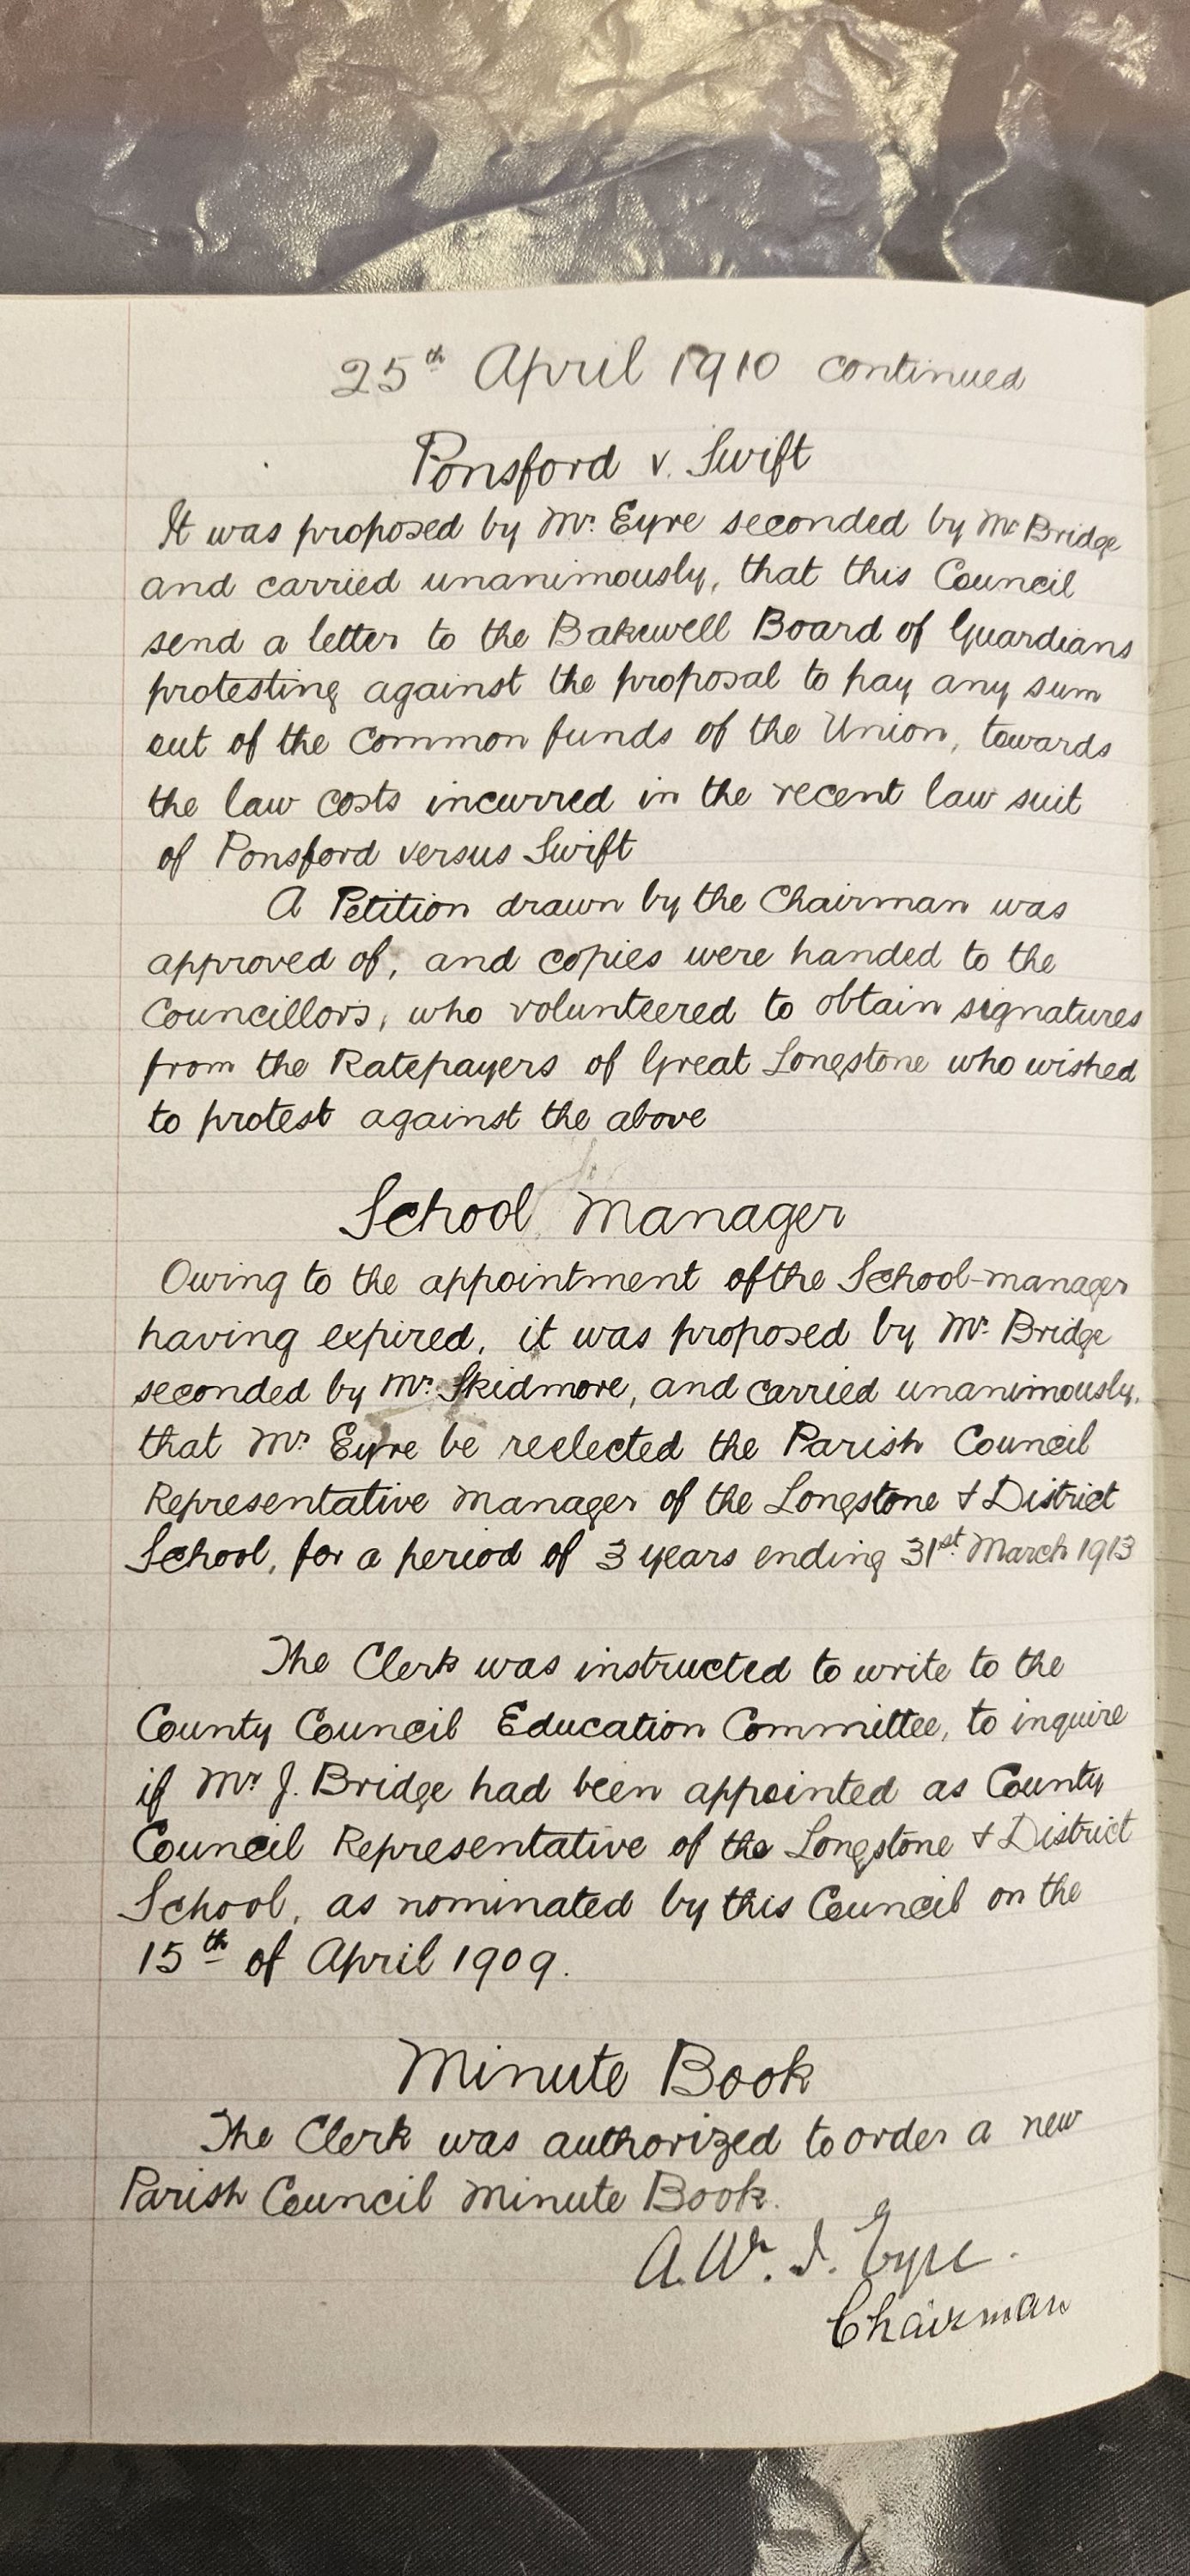 25th April 1910 continued
Ponsford v. Swift
It was proposed by Mr. Eyre seconded by Mr Bridge
and carried unanimously, that this Council
send a letter to the Bakewell Board of Guardians
protesting against the proposal to pay any sum
out of the common funds of the Union, towards
the law costs incurred in the recent law suit
of Ponsford versus Swift
A Petition drawn by the Chairman was
approved of, and copies were handed to the
Councillors, who volunteered to obtain signatures
from the Ratepayers of Great Longstone who wished
to protest against the above
School Manager
Owing to the appointment of the School-manager
having expired, it was proposed by Mr. Bridge
seconded by Mr. Skidmore, and carried unanimously,
that Mr Eyre be reelected the Parish Council
Representative Manager of the Longstone & District
School, for a period of 3 years ending 31st March 1913
The Clerk was instructed to write to the
County Council Education Committee, to inquire
if Mr J. Bridge had been appointed as County
Council Representative of the Longstone & District
School, as nominated by this Council on the
15th of April 1909.
Minute Book
The Clerk was authorized to order a new
Parish Council Minute Book.
A. Wm. I. Eyre.
Chairman